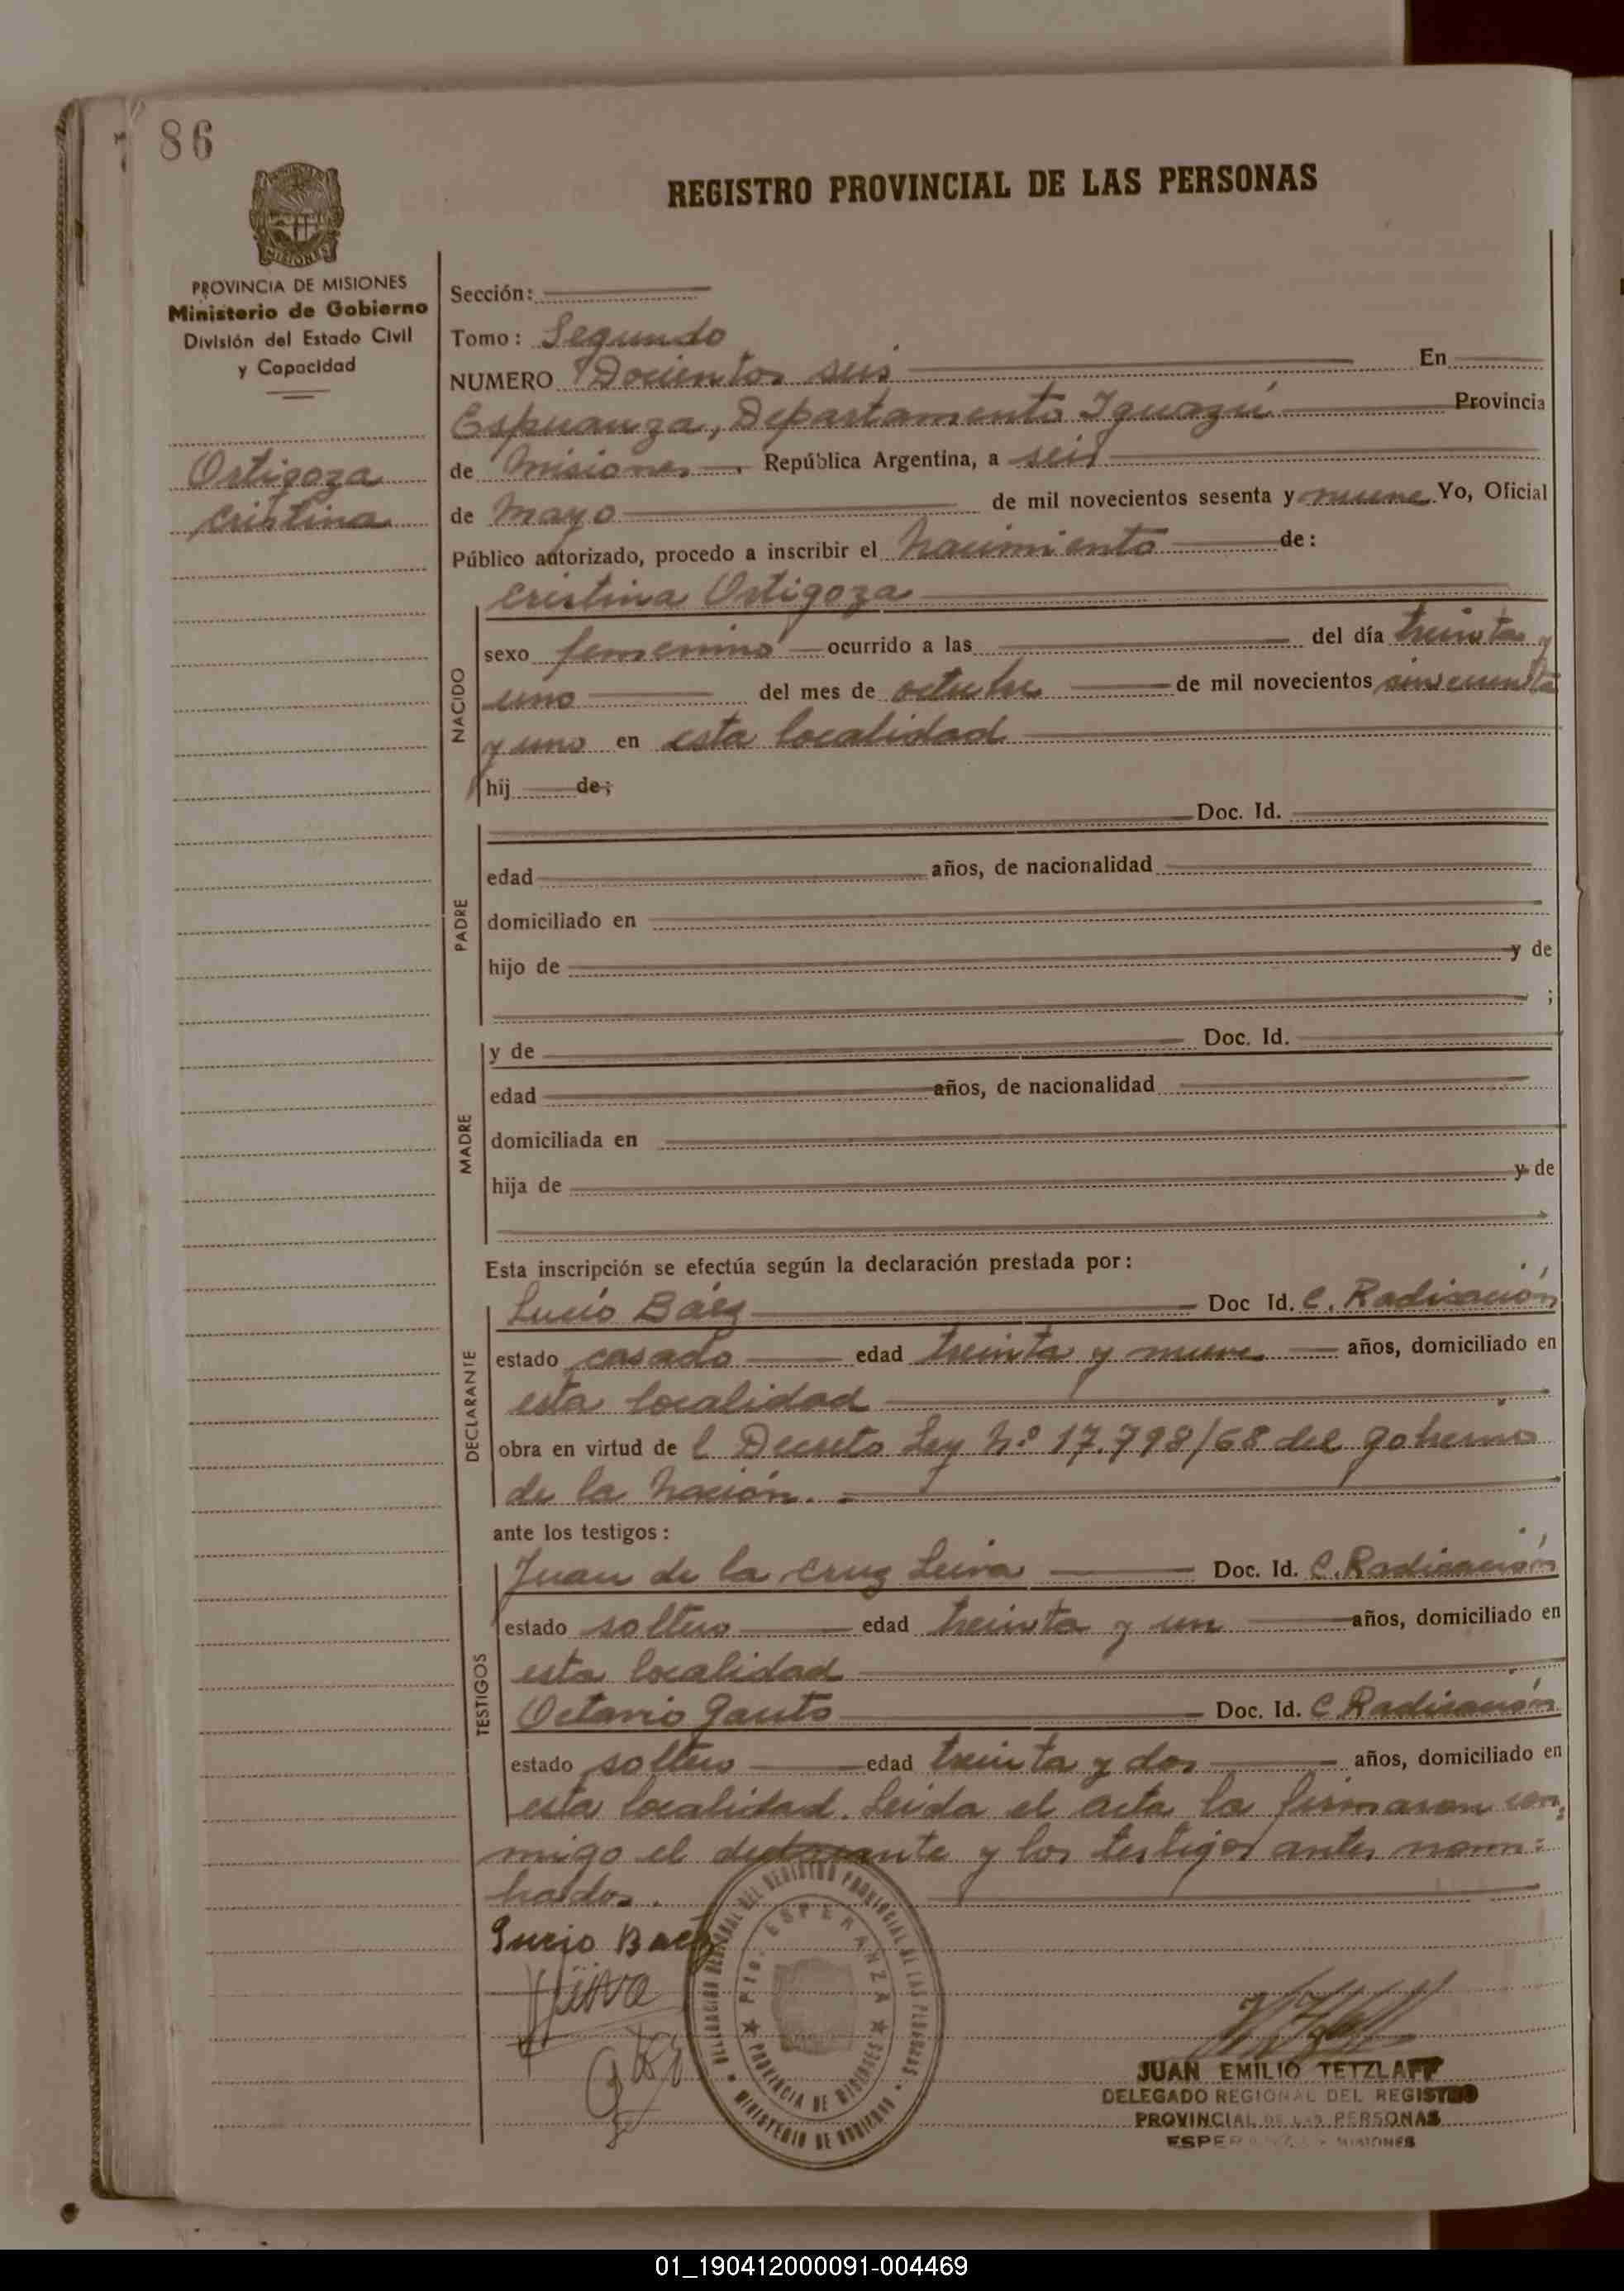 86
REGISTRO PROVINCIAL DE LAS PERSONAS
MISIONES
PROVINCIA DE MISIONES
Ministerio de Gobierno
División del Estado Civil
y Capacidad
Ortigoza
Cristina
Sección:
Tomo: Segundo
NUMERO Docientos seis En
Esperanza, Departamento Iguazú Provincia
de Misiones, República Argentina, a seis
de Mayo de mil novecientos sesenta y nueve Yo, Oficial
Público autorizado, procedo a inscribir el nacimiento de:
Cristina Ortigoza
NACIDO
sexo femenino ocurrido a las del día treinta y
uno del mes de octubre de mil novecientos cincuenta
y uno en esta localidad
hij de;
PADRE
Doc. Id.
edad años, de nacionalidad
domiciliado en
hijo de y de
;
MADRE
y de Doc. Id.
edad años, de nacionalidad
domiciliada en
hija de y de
Esta inscripción se efectúa según la declaración prestada por:
DECLARANTE
Lucio Báez Doc Id. C. Radicación
estado casado edad treinta y nueve años, domiciliado en
esta localidad
obra en virtud de l Decreto Ley Nº 17.798/68 del gobierno
de la Nación.
ante los testigos:
TESTIGOS
Juan de la Cruz Leiva Doc. Id. C. Radicación
estado soltero edad treinta y un años, domiciliado en
esta localidad
Octavio Gauto Doc. Id. C Radicación
estado soltero edad treinta y dos años, domiciliado en
esta localidad. Leída el acta la firmaron con=
migo el declarante y los testigos antes nom=
brados.
Lucio Baez
DELEGACION REGIONAL DEL REGISTRO PROVINCIAL DE LAS PERSONAS
Pto. ESPERANZA
PROVINCIA DE MISIONES
MINISTERIO DE GOBIERNO
JUAN EMILIO TETZLAFF
DELEGADO REGIONAL DEL REGISTRO
PROVINCIAL DE LAS PERSONAS
ESPERANZA - MISIONES
01_190412000091-004469